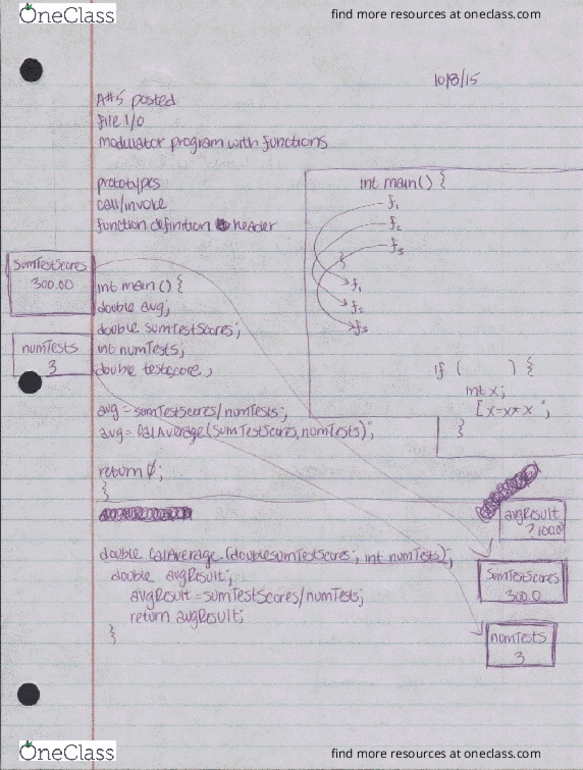 OneClass
find more resources at oneclass.com
10/8/15
A#5 posted
file I/O
modulator program with functions
prototypes
call/invoke
function definition header
int main() {
f1
f2
f3
}
f1
f2
f3
SumTestScores
300.00
numTests
3
int main () {
double avg;
double sumTestScores;
int numTests;
double testscore;
avg = sumTestScores/numTests;
avg = CalAverage(sumTestScores, numTests);
return 0;
}
if ( ) {
int x;
[x=x*x ;
}
avgResult
100.0
double CalAverage (double sumTestScores, int numTests);
double avgResult;
avgResult = sumTestScores/numTests;
return avgResult;
}
SumTestScores
300.0
numTests
3
OneClass
find more resources at oneclass.com